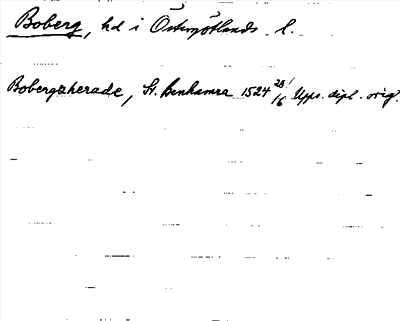 Boberg, hd i Östergötlands l.
Bobergxherade, St. Benhamra 1524 28/6 Upps. dipl. orig.